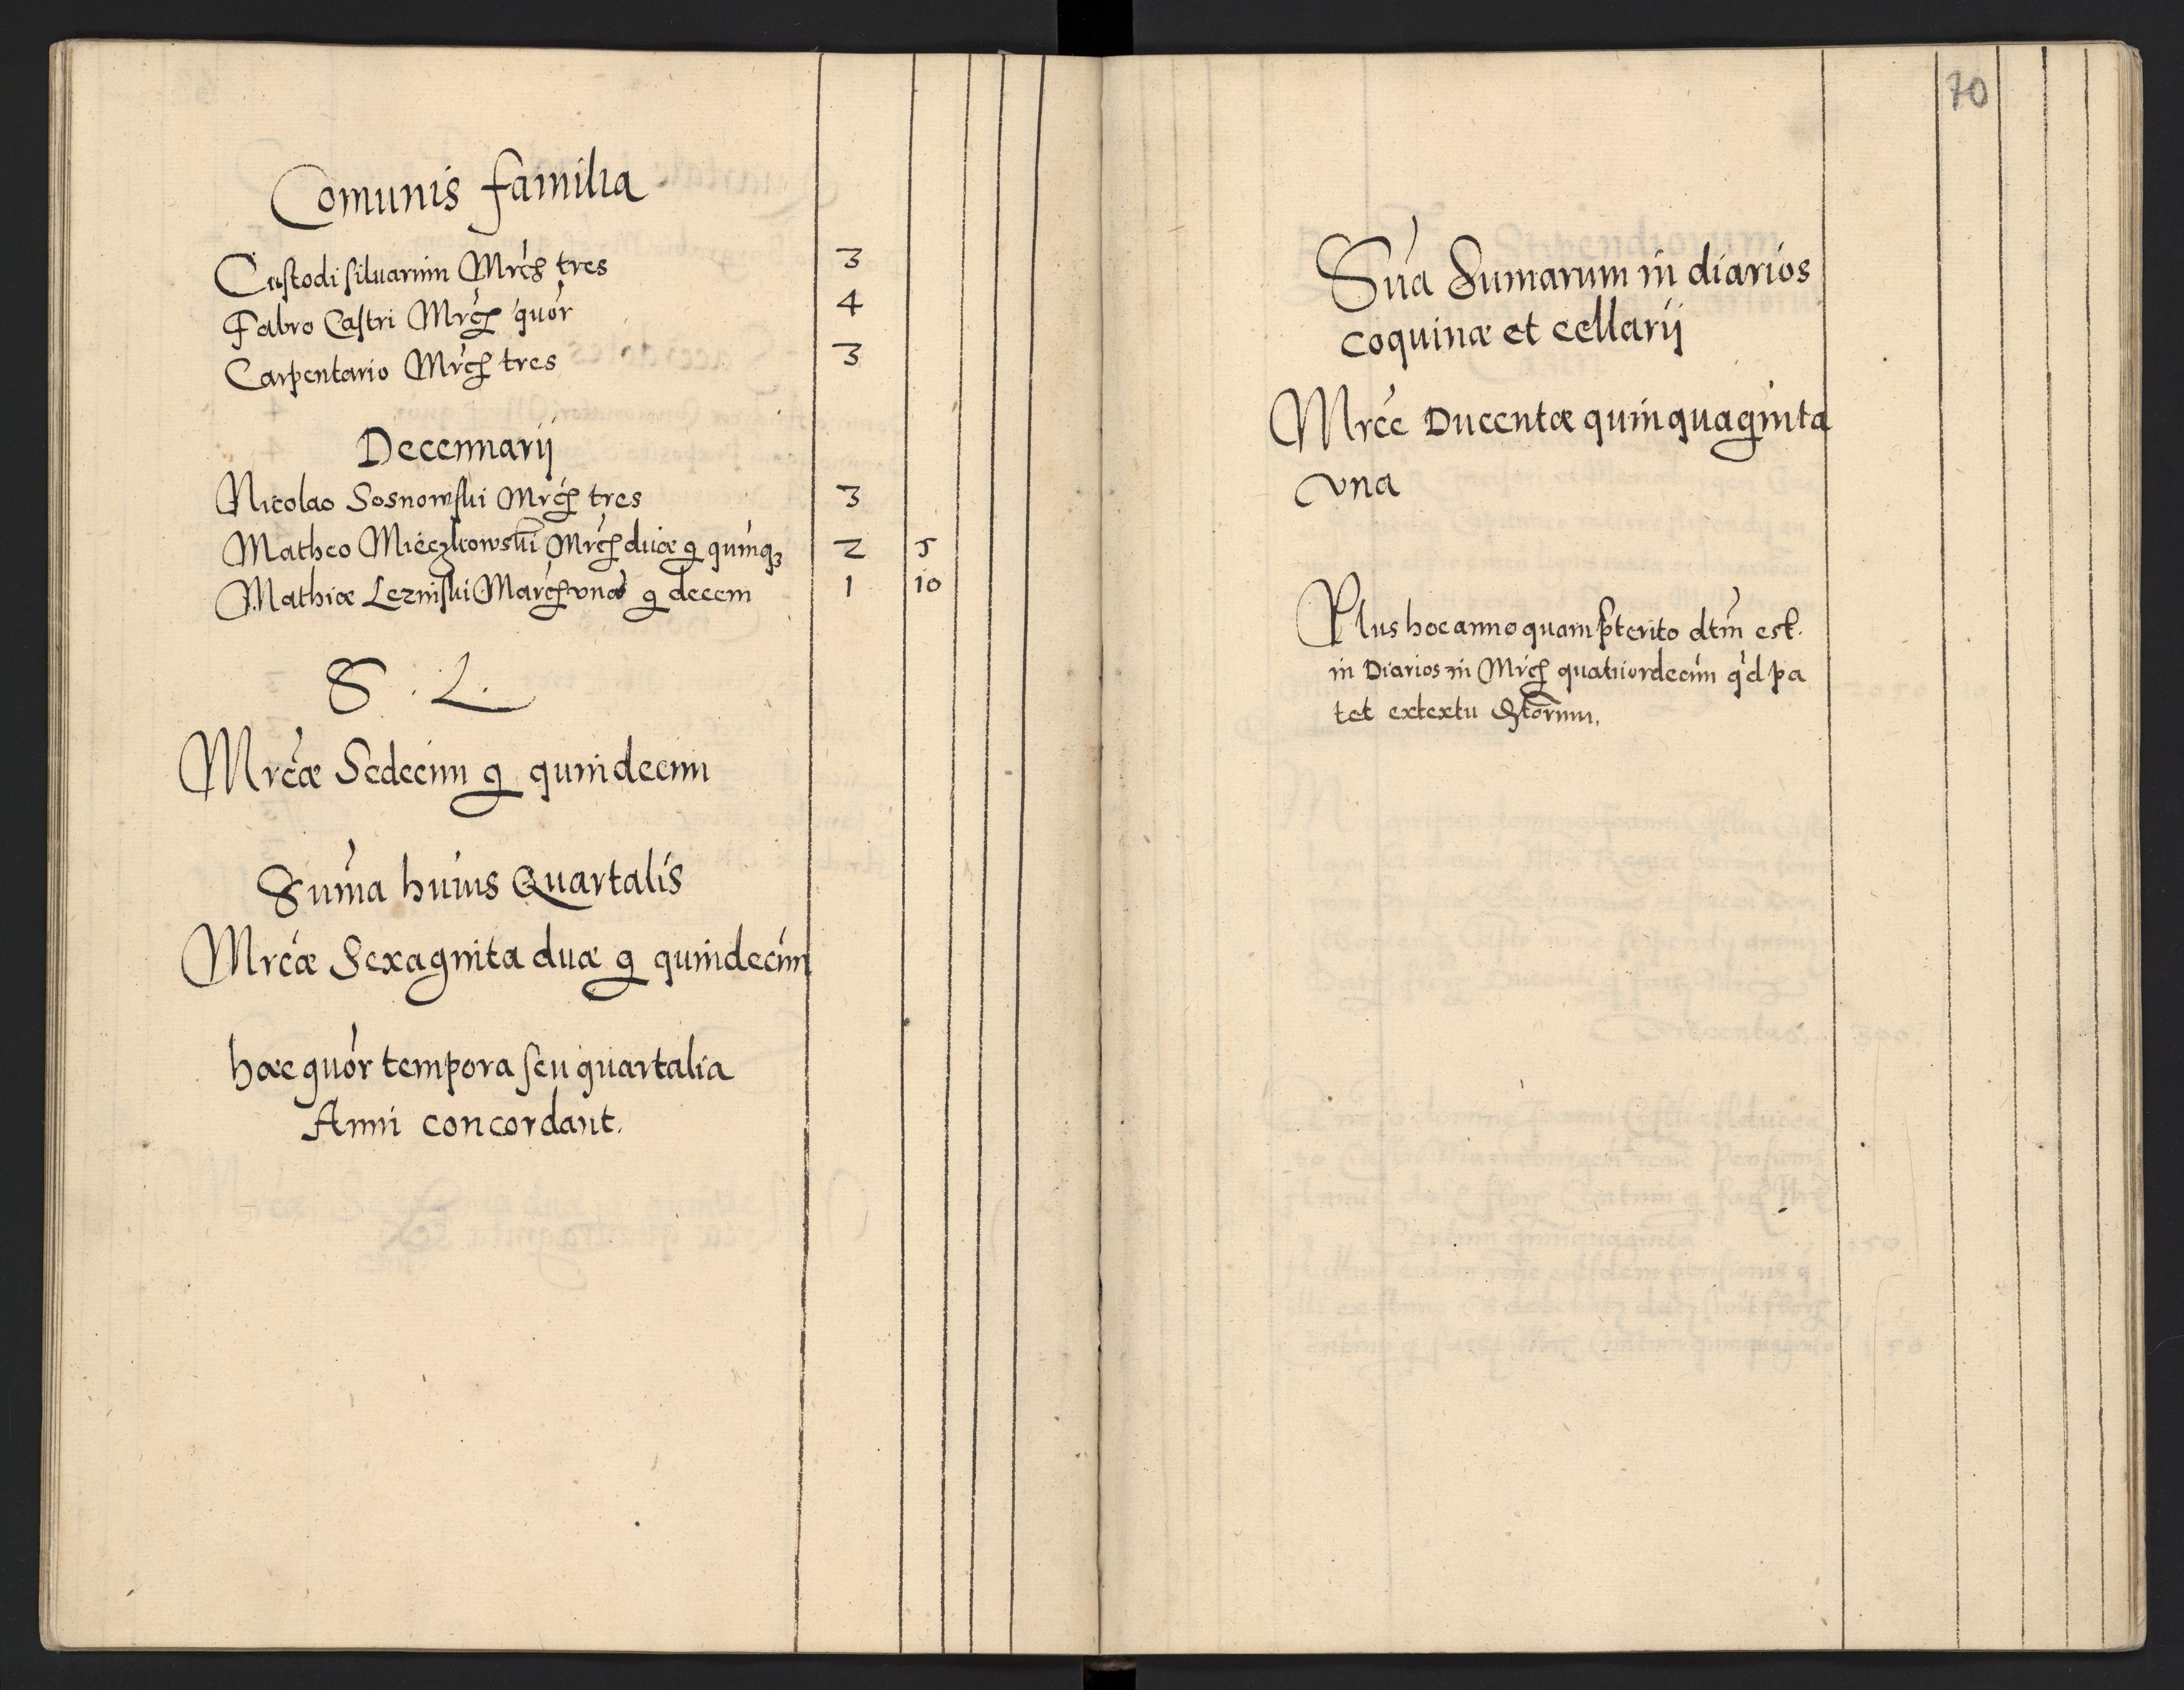 Comunis familia
Custodi siluarum Mrcs tres 3
Fabro Castri Mrcs quor 4
Carpentario Mrcs tres 3
Decennarij
Nicolao Sosnowski Mrcs tres 3
Matheo Mieczkowski Mrcs duæ g quinq3 2 5
Mathiæ Lezniski Marcs vna g decem 1 10
S. L.
Mrcæ Sedecim g quindecim
Suma huius Quartalis
Mrcæ Sexaginta duæ g quindecim
hæc quor tempora seu quartalia
Anni concordant.
70
Sua Sumarum in diarios
coquinæ et cellarij
Mrce Ducentæ quinquaginta
vna
Plus hoc anno quam pterito dtm est.
in Diarios in Mrcs quatuordecim qd pa
tet ex textu